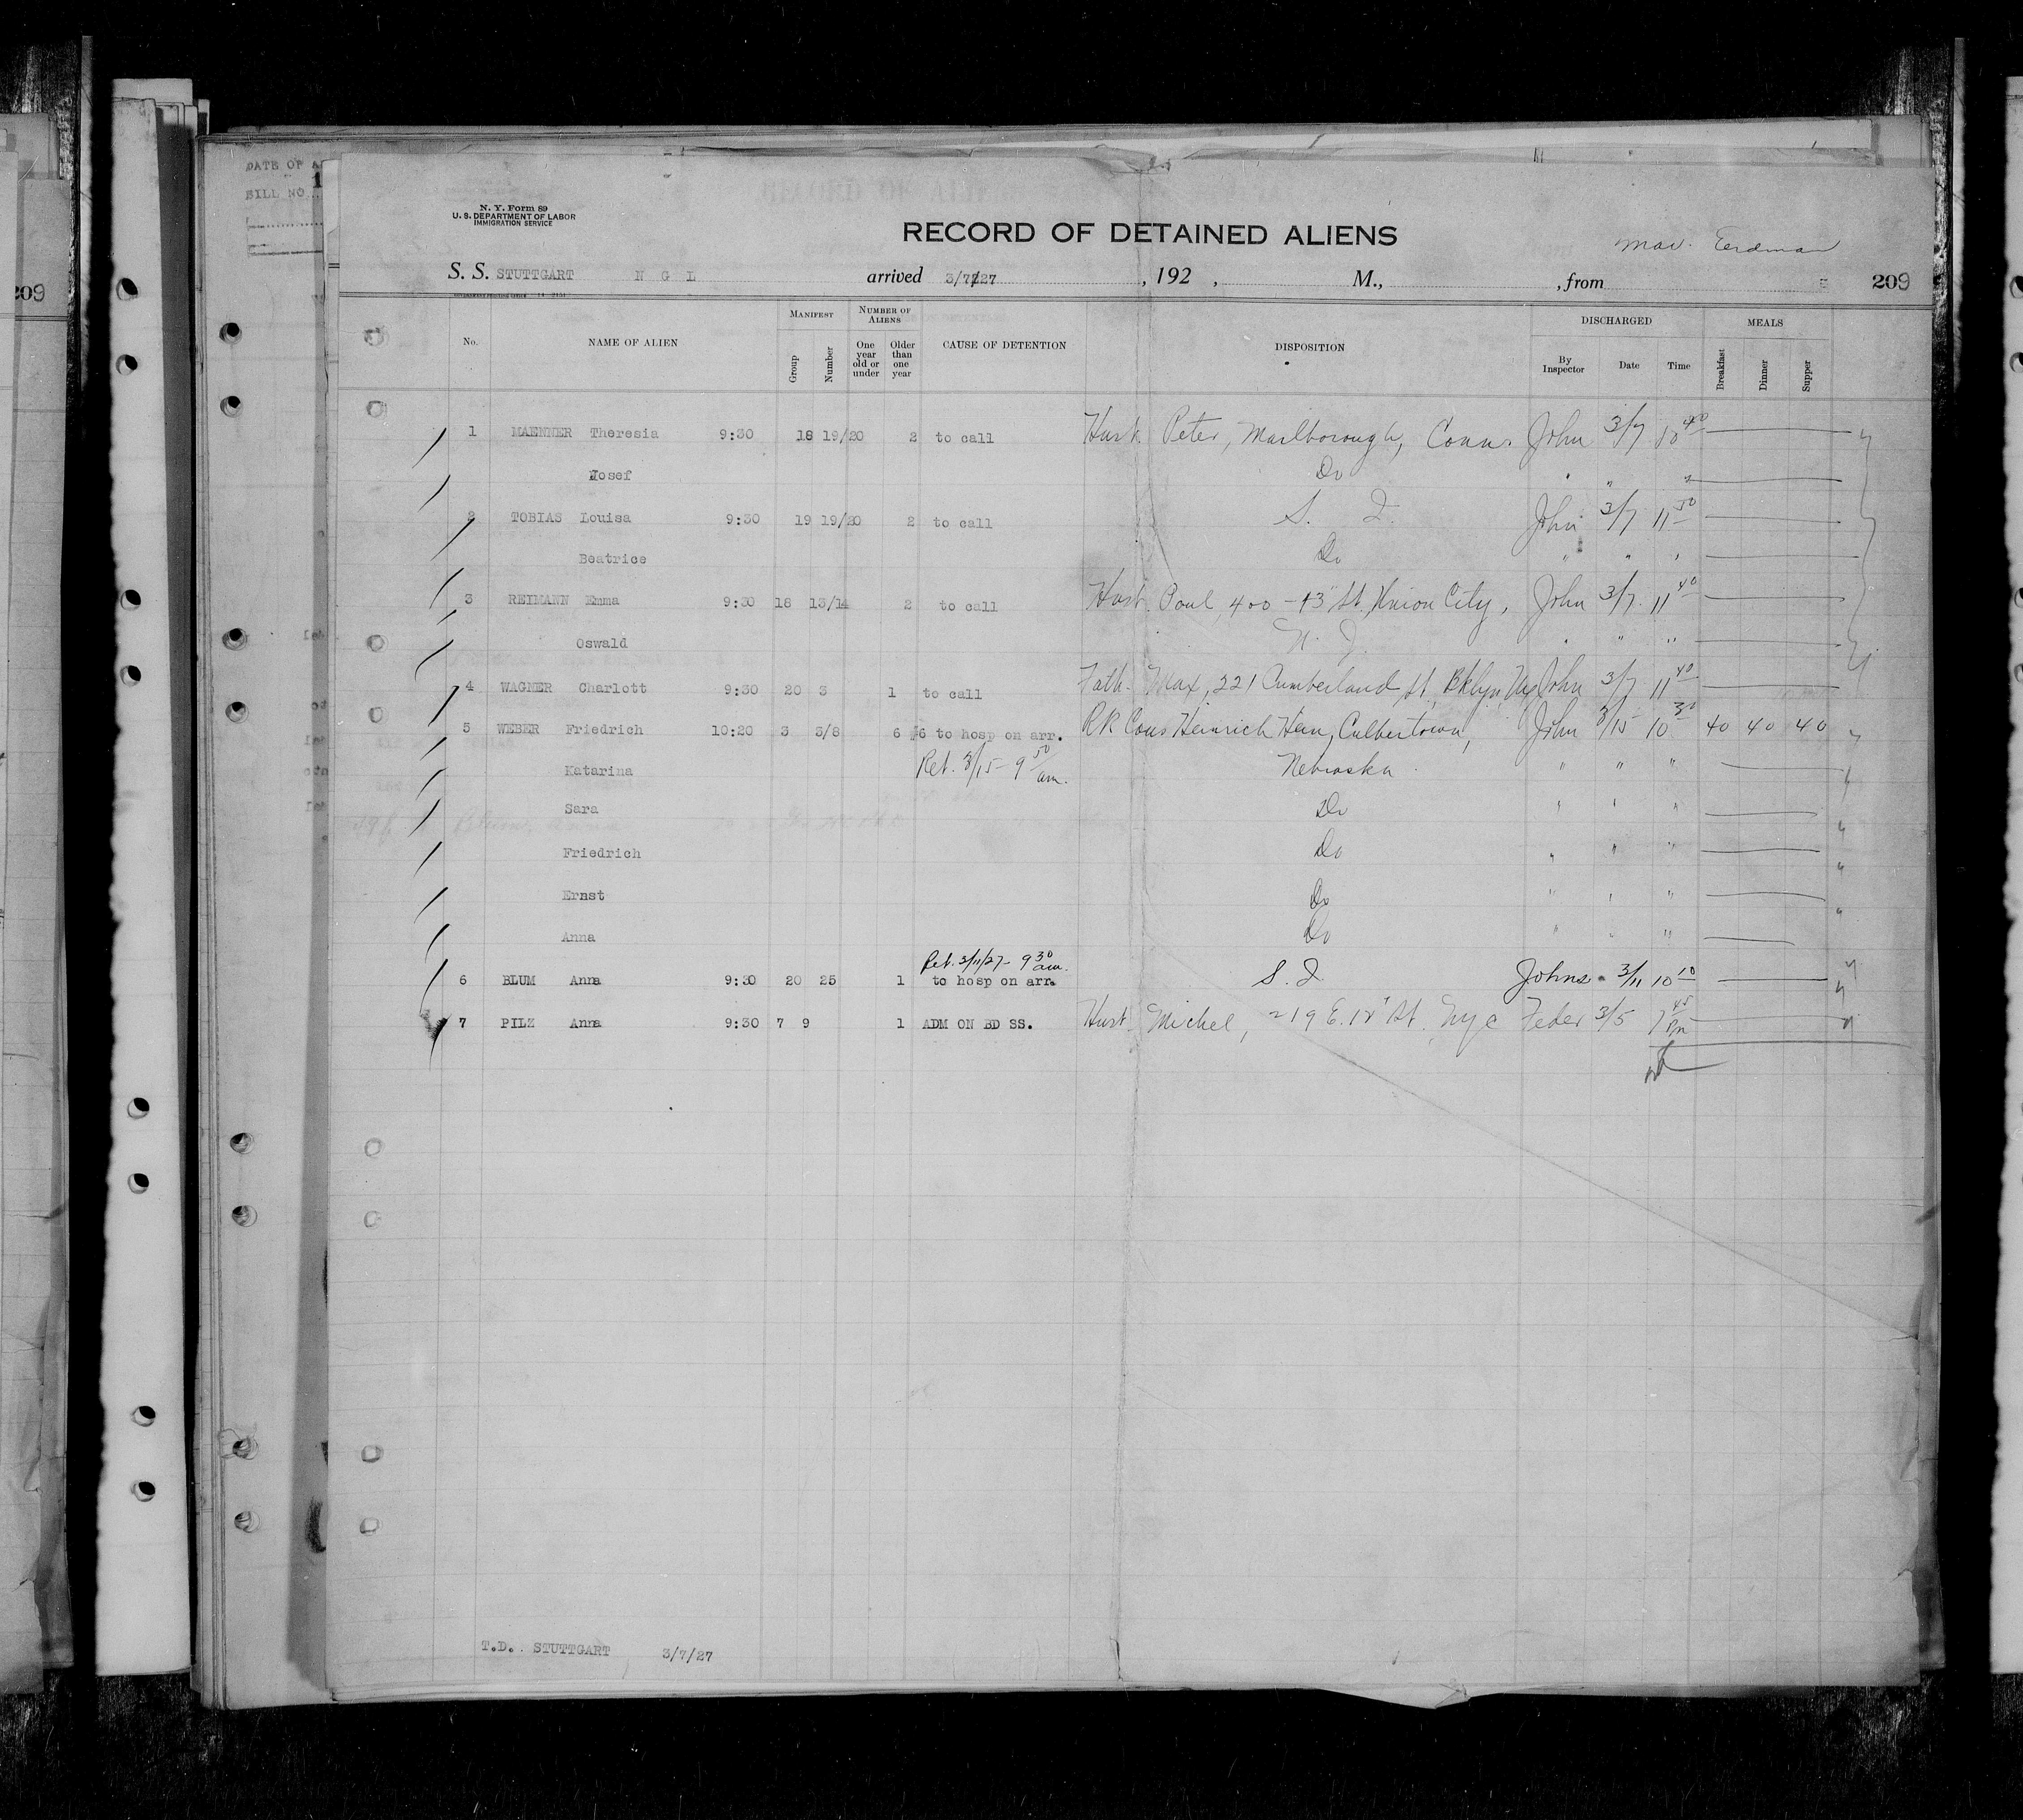 DATE OF A
BILL NO.
N. Y. Form 89
U. S. DEPARTMENT OF LABOR
IMMIGRATION SERVICE
RECORD OF DETAINED ALIENS
Erdman
209
S. S. STUTTGART N G L arrived 3/7/27, 192 , M., , from 209
No. NAME OF ALIEN MANIFEST Group Number NUMBER OF ALIENS One year old or under Older than one year CAUSE OF DETENTION DISPOSITION DISCHARGED By Inspector Date Time MEALS Breakfast Dinner Supper
1 MAENNER Theresia 9:30 18 19/20 2 to call Husb Peter, Marlborough, Conn. John 3/7 10 40
Josef Do " " "
2 TOBIAS Louisa 9:30 19 19/20 2 to call S. I. John 3/7 11 50
Beatrice Do " " "
3 REIMANN Emma 9:30 18 13/14 2 to call Husb. Paul, 400 - 13" St. Union City, John 3/7 11 40
Oswald N. J. " " "
4 WAGNER Charlott 9:30 20 3 1 to call Fath. Max, 221 Cumberland St, Bklyn, Ny John 3/7 11 40
5 WEBER Friedrich 10:20 3 3/8 6 6 to hosp on arr. RR Cous Heinrich Hein, Culbertown, John 3/15 10 30 40 40 40
Katarina Ret. 3/15 - 9 50 am. Nebraska " " "
Sara Do " " "
Friedrich Do " " "
Ernst Do " " "
Anna Do " " "
Ret. 3/11/27 - 9 30 am.
6 BLUM Anna 9:30 20 25 1 to hosp on arr. S. I Johns 3/11 10 10
7 PILZ Anna 9:30 7 9 1 ADM ON BD SS. Husb. Michel, 219 E. 12" St. Nyc Feder 3/5 7 45 Pm
T.D. STUTTGART 3/7/27